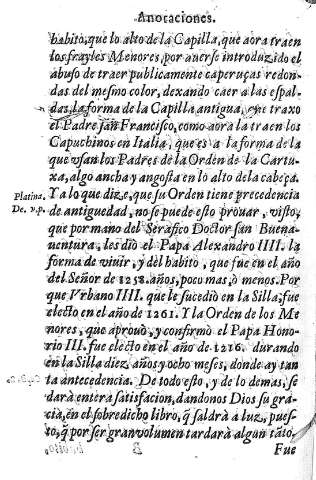 Anotaciones.
habito, que lo alto de la Capilla, que aora traen
los frayles Menores, por auerse introduzido el
abuso de traer publicamente caperuças redon
das del mesmo color, dexando caer a las espal-
das la forma de la Capilla antigua, que traxo
el Padre san Francisco, como aora la traen los
Capuchinos en Italia, que es a la forma de la
que vsan los Padres de la Orden de la Cartu-
xa, algo ancha y angosta en lo alto de la cabeça.
Platina.
De. v. p.
Y a lo que dize, que su Orden tiene precedencia
de antiguedad, no se puede esto prouar, visto,
que por mano del Serafico Doctor san Buena-
uentura, les dió el Papa Alexandro IIII. la
forma de viuir, y del habito, que fue en el año
del Señor de 1258. años, poco mas, ò menos. Por
que Vrbano IIII. que le sucedio en la Silla, fue
electo en el año de 1261. Y la Orden de los Me
nores, que aprouò, y confirmò el Papa Hono-
rio III. fue electo en el año de 1216. durando
en la Silla diez años y ocho meses, donde ay tan
ta antecedencia. De todo esto, y de lo demas, se
darà entera satisfacion, dandonos Dios su gra-
cia, en el sobredicho libro, q̃ saldrà a luz, pues-
to, q̃ por ser gran volumen tardarà algun tãto.
Fue